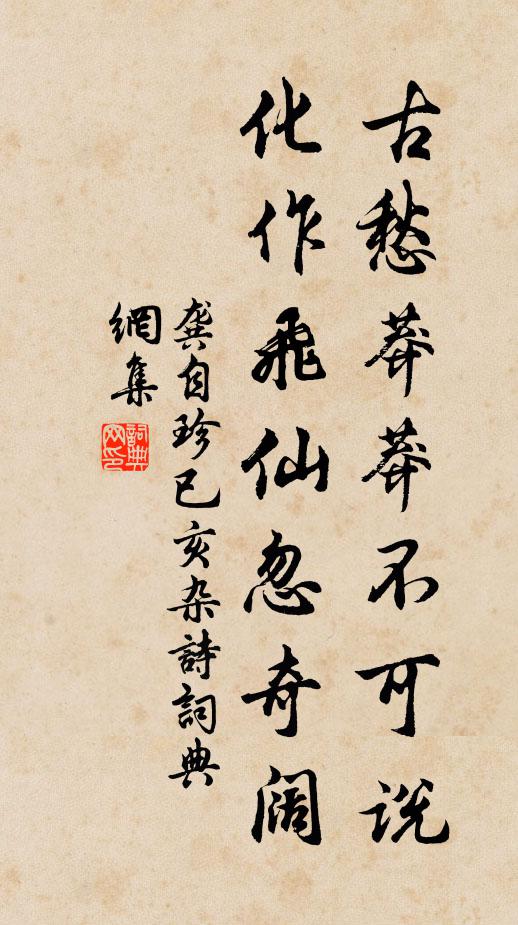 古愁莽莽不可说
化作飛仙忽奇阔
龔自珍已亥杂詩詞典
網集
詞典
网印